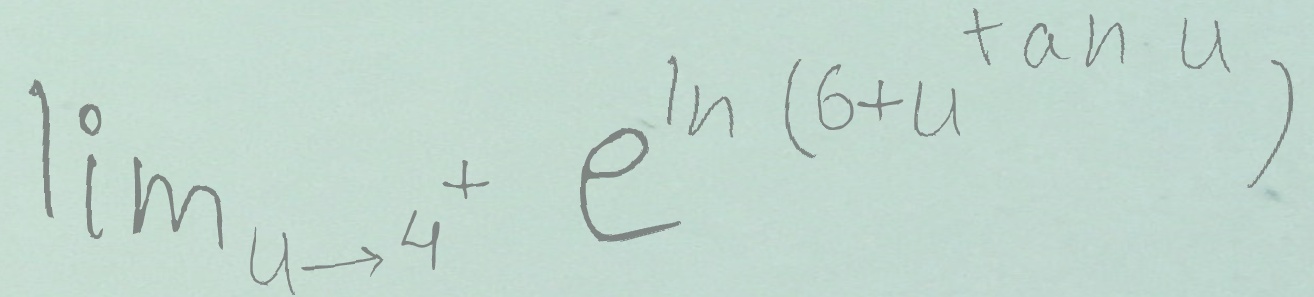 lim_{u→4^+} e^{ln(6+u^{tan u})}